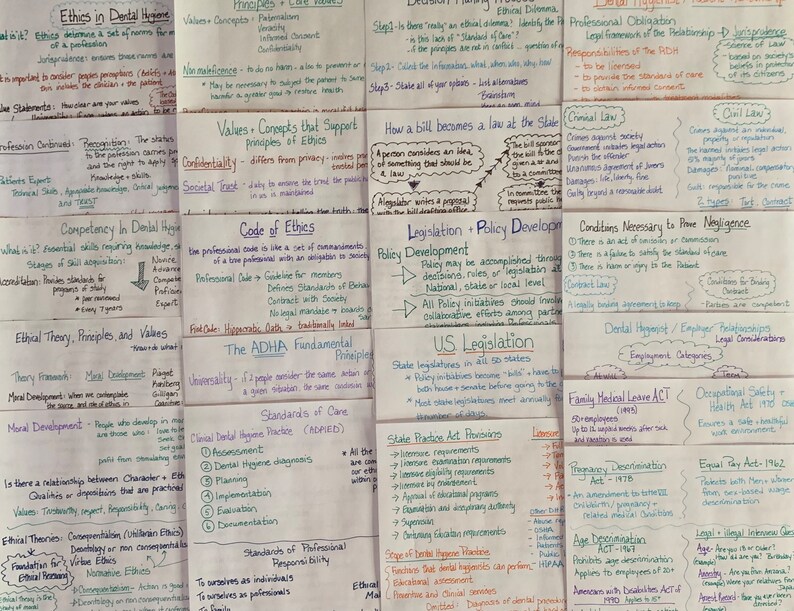 Ethics in Dental Hygiene
what is it? Ethics determine a set of norms for m
of a profession
Jurisprudence: ensures those norms are
is important to consider peoples perceptions
this includes the clinician + the patient.
Value Statements: How clear are your values
Profession Continued: Recognition: The status
to the profession carries
and the right to apply
Knowledge + skills.
Patients Expect
Technical Skills, Appropriate knowledge, Critical judgment
and TRUST
Competency In Dental Hygie
What is it? Essential skills requiring knowledge,
Stages of Skill acquisition:
Accreditation: Provides standards for
programs of study
* peer reviewed
* Every 7 years
Novice
Advance
Compete
Proficien
Expert
Ethical Theory, Principles, and Values
-Know + do what
Theory Framework: Moral Development: Piaget
Kohlberg
Gilligan
Moral Development: When we contemplate
the source and role of ethics in
Cognitive
Moral Development - People who develop in mo
are those who: love to le
Seek
Set g
profit from stimulating
Is there a relationship between Character + Eth
Qualities or dispositions that are practiced
Values: Trustworthy, respect, Responsibility, Caring
Ethical Theories: Consequentialism (Utilitarian Ethics)
Deontology or non consequentialis
Virtue Ethics
Foundation for
Ethical Reasoning
Normative Ethics
→ Consequentialism - Action is good
→ Deontology or non consequentialis
Ethical Theory is the
Principles + Core Values
Values + Concepts → Paternalism
Veracity
Informed Consent
Confidentiality
Nonmaleficence - to do no harm - also to prevent or
* May be necessary to subject the patient to some
harm for a greater good → restore health
Values + Concepts that Support
principles of Ethics
Confidentiality - differs from privacy - involves
trusted
Societal Trust - duty to ensure the trust the public
in us is maintained
Code of Ethics
the professional code is like a set of commandments
of a true professional with an obligation to society
Professional Code → Guideline for members
Defines Standards of Behav
Contract with Society
No legal mandate → boards
First Code: Hippocratic Oath → traditionally linked
The ADHA Fundamental
Principles
Universality - if 2 people consider the same action
a given situation, the same conclusion
Standards of Care
Clinical Dental Hygiene Practice (ADPIED)
① Assessment
② Dental Hygiene diagnosis
③ Planning
④ Implementation
⑤ Evaluation
⑥ Documentation
* All the
are com
or eth
within
Standards of Professional
Responsibility
To ourselves as individuals
To ourselves as professionals
To Family
Ethical
Decision Making Process
Ethical Dilemma
Step 1 - Is there "really" an ethical dilemma? Identify the
- is this lack of "Standard of Care"?
- if the principles are not in conflict - question of
Step 2 - Collect the Information, what, when, who, why, how
Step 3 - State all of your options - List alternatives
Brainstorm
How a bill becomes a law at the State
A person considers an idea
of something that should be
a law
A legislator writes a proposal
with the bill drafting office
The bill sponsor
the bill to the
given a # and
to a committee
In committee the
requests public h
Legislation + Policy Developm
Policy Development
Policy may be accomplished through
decisions, rules, or legislation at
National, state or local level
All Policy initiatives should involve
collaborative efforts among partne
stakeholders including Professionals
U.S. Legislation
State legislatures in all 50 states
* Policy initiatives become "bills" + have to
both house + senate before going to the
* Most state legislatures meet annually fo
# number of days.
State Practice Act Provisions
→ licensure requirements
→ licensure examination requirements
→ licensure eligibility requirements
→ licensure by endorsement
→ Approval of educational programs
→ Examination and disciplinary authority
→ Supervision
→ Continuing Education requirements
Licensure
Other
Abuse
OSHA
HIPAA
Scope of Dental Hygiene Practice
Functions that dental hygienists can perform
Educational assessment
Preventive and Clinical services
Omitted: Diagnosis of dental procedur
Professional Obligation
Legal framework of the Relationship → Jurisprudence
-Science of Law
-based on society's
beliefs in protection
of its citizens
Responsibilities of the RDH
- to be licensed
- to provide the standard of care
- to obtain informed consent
Criminal Law
Crimes against society
Government initiates legal action
Punish the offender
Unanimous agreement of Jurors
Damages: life, liberty, fine
Guilty beyond a reasonable doubt
Civil Law
Crimes against an individual,
property or reputation
The harmed initiates legal action
majority of jurors
Damages: nominal, compensatory
punitive
Guilt: responsible for the crime
2 types: Tort, Contract
Conditions Necessary to Prove Negligence
① There is an act of omission or commission
② There is a failure to satisfy the standard of care
③ There is harm or injury to the Patient
Contract Law
A legally binding agreement to keep
Conditions for Binding
Contract
- Parties are competent
Dental Hygienist / Employer Relationships
Legal Considerations
Employment Categories
At Will
Term
Family Medical Leave ACT
(1993)
50+ employees
Up to 12 unpaid weeks after sick
and vacation is used
Occupational Safety +
Health Act 1970 OSH
Ensures a safe + healthful
work environment
Pregnancy Discrimination
Act - 1978
An amendment to title VII
Childbirth / pregnancy +
related medical conditions
Equal Pay Act - 1962
Protects both Men + women
from sex-based wage
discrimination
Age Discrimination
ACT - 1967
Prohibits age discrimination
Applies to employees of 20+
Americans with Disabilities ACT of
1990 Applies to 15+
Legal + illegal Interview Ques
Age - Are you 18 or older?
How old are you? Birthday
Ancestry - Are you from Arizona?
Where your relatives from
Arrest Record - Have you ever been